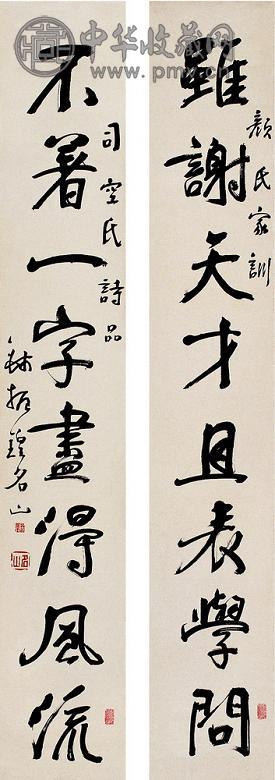 中华收藏网
www.pmvc.cn
雖謝天才且表學問
顏氏家訓
不著一字盡得風流
司空氏詩品
錢振鍠名山
名山